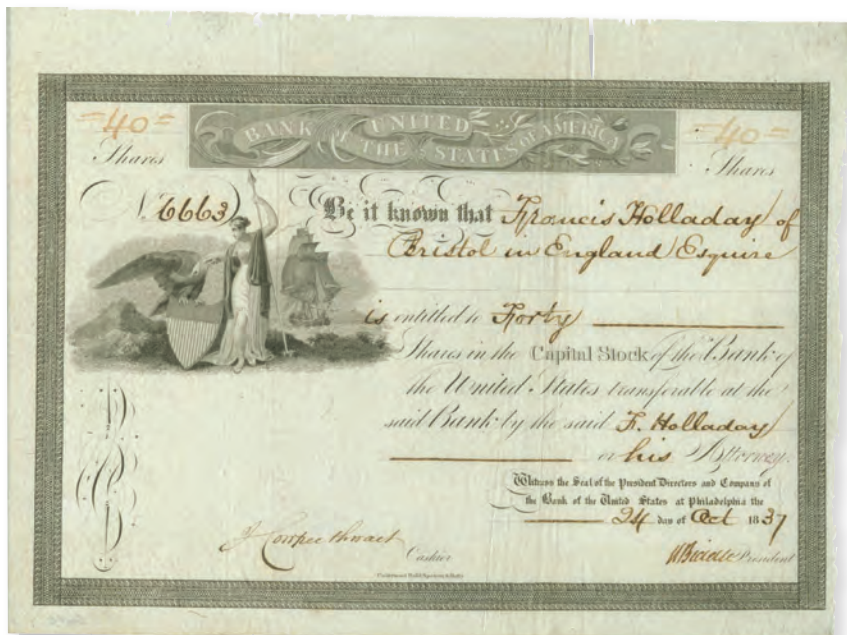 =40=
=40=
BANK OF THE UNITED STATES OF AMERICA
Shares
Shares
No. 6663
Be it known that Francis Holladay of
Bristol in England Esquire
is entitled to Forty
Shares in the Capital Stock of the Bank of
the United States transferable at the
said Bank by the said F. Holladay
or his Attorney.
Witness the Seal of the President Directors and Company of
the Bank of the United States at Philadelphia the
24 day of Oct 1837
J Cowperthwait
Cashier
N Biddle President